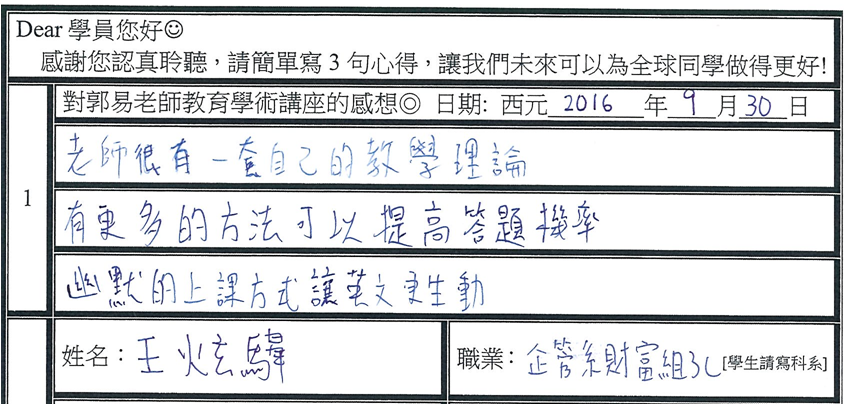 Dear 學員您好☺
感謝您認真聆聽，請簡單寫 3 句心得，讓我們未來可以為全球同學做得更好!
1
對郭易老師教育學術講座的感想◎ 日期: 西元 2016 年 9 月 30 日
老師很有一套自己的教學理論
有更多的方法可以提高答題機率
幽默的上課方式讓英文更生動
姓名：王火玄驊 職業：企管系財富組3C [學生請寫科系]